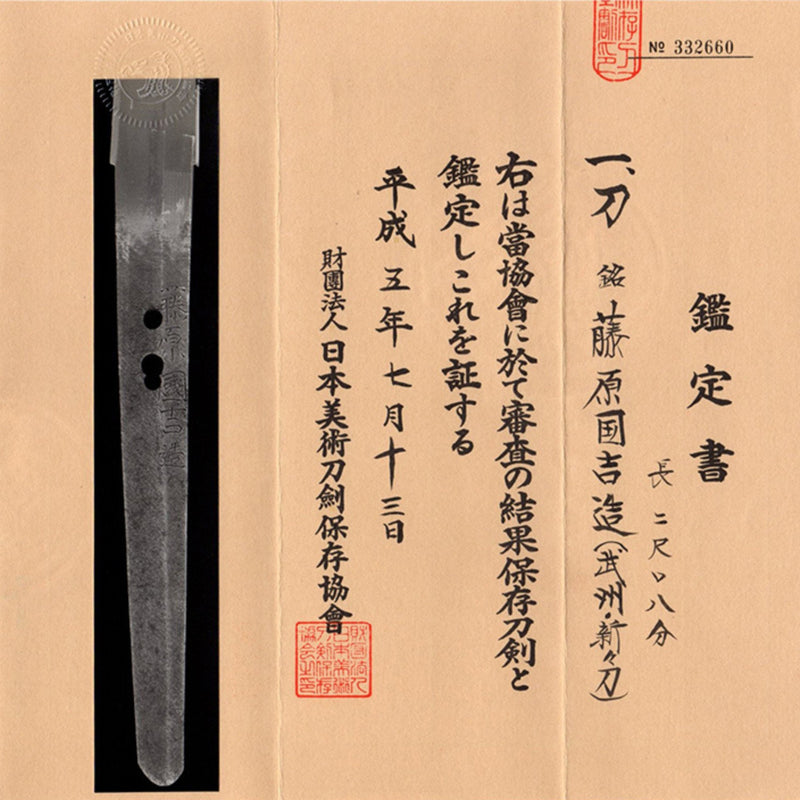 № 332660
鑑定書
一、刀 銘 藤原国吉造(武州・新々刀)
長 二尺〇八分
右は當協會に於て審査の結果保存刀剣と
鑑定しこれを証する
平成五年七月十三日
財團法人日本美術刀劍保存協會
藤原國吉造